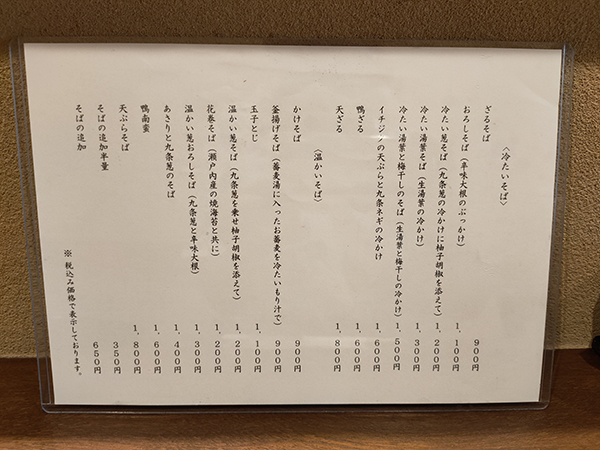 〈冷たいそば〉
ざるそば 900円
おろしそば(辛味大根のぶっかけ) 1,100円
冷たい葱そば(九条葱の冷かけに柚子胡椒を添えて) 1,200円
冷たい湯葉そば(生湯葉の冷かけ) 1,300円
冷たい湯葉と梅干しのそば(生湯葉と梅干しの冷かけ) 1,500円
イチジクの天ぷらと九条ネギの冷かけ 1,600円
鴨ざる 1,600円
天ざる 1,800円
〈温かいそば〉
かけそば 900円
釜揚げそば(蕎麦湯に入ったお蕎麦を冷たいもり汁で) 900円
玉子とじ 1,100円
温かい葱そば(九条葱を乗せ柚子胡椒を添えて) 1,200円
花巻そば(瀬戸内産の焼海苔と共に) 1,200円
温かい葱おろしそば(九条葱と辛味大根) 1,300円
あさりと九条葱のそば 1,400円
鴨南蛮 1,600円
天ぷらそば 1,800円
そばの追加半量 350円
そばの追加 650円
※ 税込み価格で表示しております。